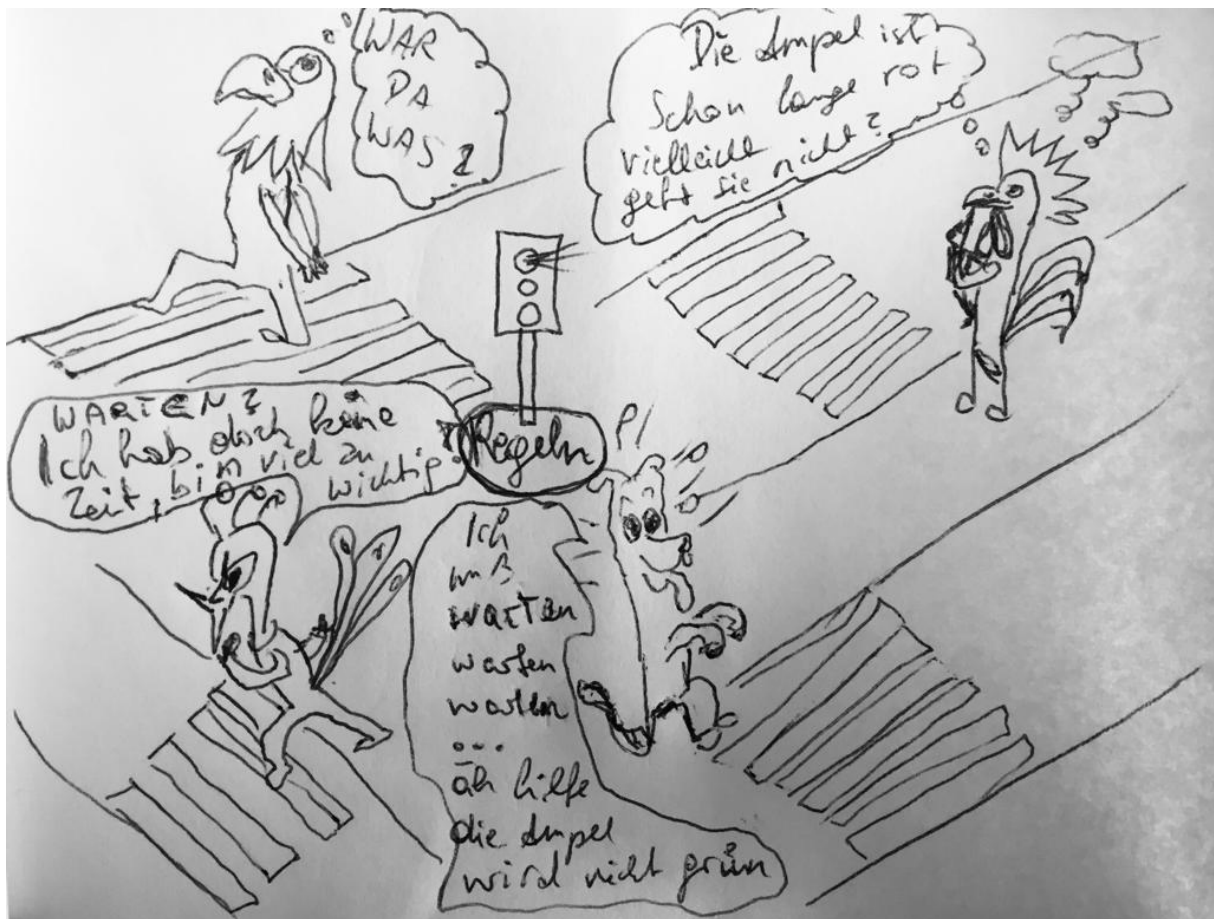 WAR
DA
WAS?
Die Ampel ist
Schon lange rot
vielleicht
geht sie nicht?
WARTEN?
Ich hab doch keine
Zeit, bin viel zu
wichtig
Regeln
Ich
muß
WARTEN
warten
warten
...
äh hilfe
die Ampel
wird nicht grün